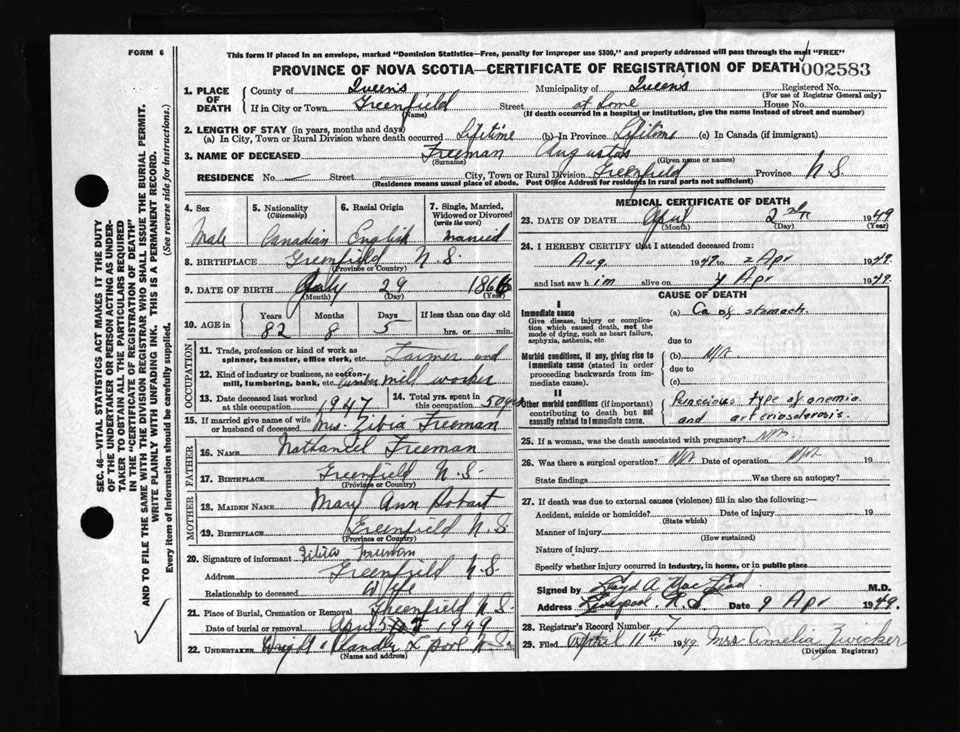 FORM 6
This form if placed in an envelope, marked "Dominion Statistics—Free, penalty for improper use $300," and properly addressed will pass through the mail "FREE"
PROVINCE OF NOVA SCOTIA—CERTIFICATE OF REGISTRATION OF DEATH 002583
1. PLACE OF DEATH County of Queens Municipality of Queens Registered No.
(For use of Registrar General only)
If in City or Town Greenfield Street at home House No.
(Name) (If death occurred in a hospital or institution, give the name instead of street and number)
2. LENGTH OF STAY (in years, months and days)
(a) In City, Town or Rural Division where death occurred Lifetime (b) In Province Lifetime (c) In Canada (if immigrant)
3. NAME OF DECEASED Freeman Augustas
(Surname) (Given name or names)
RESIDENCE No. — Street — City, Town or Rural Division Greenfield Province N.S.
(Residence means usual place of abode. Post Office Address for residents in rural parts not sufficient)
4. Sex 5. Nationality (Citizenship) 6. Racial Origin 7. Single, Married, Widowed or Divorced (write the word)
Male Canadian English Married
8. BIRTHPLACE Greenfield N.S.
(Province or Country)
9. DATE OF BIRTH July 29 1866
(Month) (Day) (Year)
10. AGE in Years Months Days If less than one day old
82 8 5 hrs. or min.
OCCUPATION
11. Trade, profession or kind of work as spinner, teamster, office clerk, etc. Farmer and
12. Kind of industry or business, as cotton-mill, lumbering, bank, etc. lumber mill worker
13. Date deceased last worked at this occupation 1947 14. Total yrs. spent in this occupation 50 yrs
15. If married give name of wife or husband of deceased Mrs. Zibia Freeman
FATHER
16. NAME Nathaniel Freeman
17. BIRTHPLACE Greenfield N.S.
(Province or Country)
MOTHER
18. MAIDEN NAME Mary Ann
19. BIRTHPLACE Greenfield N.S.
(Province or Country)
20. Signature of informant Zibia Freeman
Address Greenfield N.S.
Relationship to deceased Wife
21. Place of Burial, Cremation or Removal Greenfield N.S.
Date of burial or removal April 5th 1949
22. UNDERTAKER N.S.
(Name and address)
MEDICAL CERTIFICATE OF DEATH
23. DATE OF DEATH April 2nd 1949
(Month) (Day) (Year)
24. I HEREBY CERTIFY that I attended deceased from:
Aug. 1947 to 2 Apr 1949.
and last saw him alive on Apr 1949.
CAUSE OF DEATH
I
Immediate cause
Give disease, injury or complication which caused death, not the mode of dying, such as heart failure, asphyxia, asthenia, etc
(a) Ca of stomach
due to
Morbid conditions, if any, giving rise to immediate cause (stated in order proceeding backwards from immediate cause).
(b) N/A
due to
(c)
II
Other morbid conditions (if important) contributing to death but not causally related to immediate cause.
Pernicious type of anemia
and arteriosclerosis.
25. If a woman, was the death associated with pregnancy? N/A.
26. Was there a surgical operation? N/A Date of operation N/A 19
State findings Was there an autopsy?
27. If death was due to external causes (violence) fill in also the following:—
Accident, suicide or homicide? Date of injury 19
(State which)
Manner of injury
(How sustained)
Nature of injury
Specify whether injury occurred in industry, in home, or in public place
Signed by Lloyd A. MacLeod M.D.
Address Liverpool, N.S. Date 9 Apr 1949.
28. Registrar's Record Number 7
29. Filed April 11th 1949 Mrs Amelia Zwicker
(Division Registrar)
SEC. 46—VITAL STATISTICS ACT MAKES IT THE DUTY
OF THE UNDERTAKER OR PERSON ACTING AS UNDER-
TAKER TO OBTAIN ALL THE PARTICULARS REQUIRED
IN THE "CERTIFICATE OF REGISTRATION OF DEATH"
AND TO FILE THE SAME WITH THE DIVISION REGISTRAR WHO SHALL ISSUE THE BURIAL PERMIT.
WRITE PLAINLY WITH UNFADING INK. THIS IS A PERMANENT RECORD.
Every item of information should be carefully supplied. (See reverse side for instructions.)